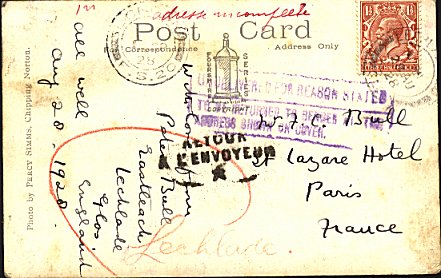 address incomplete
Post Card
For Correspondence
Address Only
PHOTOCHROM
SERIES
S.20
28
UNDELIVERED FOR REASON STATED
TO BE RETURNED TO SENDER AT THE
ADDRESS SHOWN ON COVER.
RETOUR
A L'ENVOYEUR
Bull
St Lazare Hotel
Paris
France
in
all well
Aug 28. 1928.
from
Peter Bull
Eastleach
Lechlade
Glos
England
Lechlade.
Photo by PERCY SIMMS, Chipping Norton.